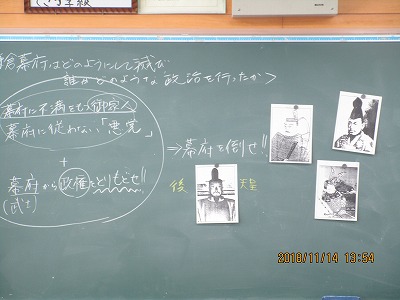 倉幕府はどのようにして滅び
誰がどのような政治を行ったか>
幕府に不満をもつ御家人
幕府に従わない「悪党」
+
幕府から政権をとりもどせ!!
(武士)
⇒幕府を倒せ!!
後 天皇
2018/11/14 13:54